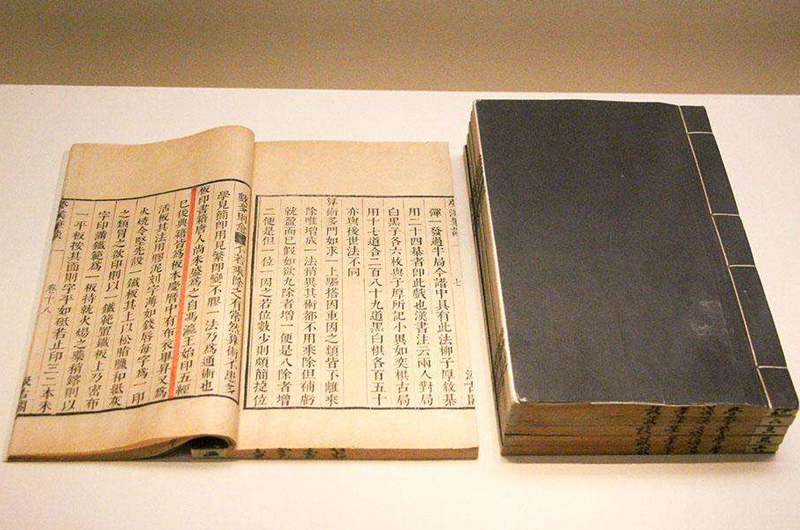 七
彈一發過半局今譜中具有此法柳子厚敘棊
用二十四棊者即此戲也漢書注云兩人對局
白黑子各六枚與子厚所記小異如奕棋古局
用十七道合二百八十九道黑白棋各百五十
亦與後世法不同
算術多門如求一上驅搭因重因之類皆不離乘
除唯增成一法稍異其術都不用乘除但補虧
就盈而已假如欲九除者增一便是八除者增
二便是但一位一因之若位數少則頗簡捷位
數多則愈繁不若乘除之有常然算術不患多
學見簡即用見繁即變不膠一法乃為通術也
板印書籍唐人尚未盛為之自馮瀛王始印五經
已後典籍皆為板本慶曆中有布衣畢昇又為
活板其法用膠泥刻字薄如錢唇每字為一印
火燒令堅先設一鐵板其上以松脂臘和紙灰
之類冒之欲印則以一鐵範置鐵板上乃密布
字印滿鐵範為一板持就火煬之藥稍鎔則以
一平板按其面則字平如砥若止印三二本未
夢溪筆談 卷十八 汲古閣